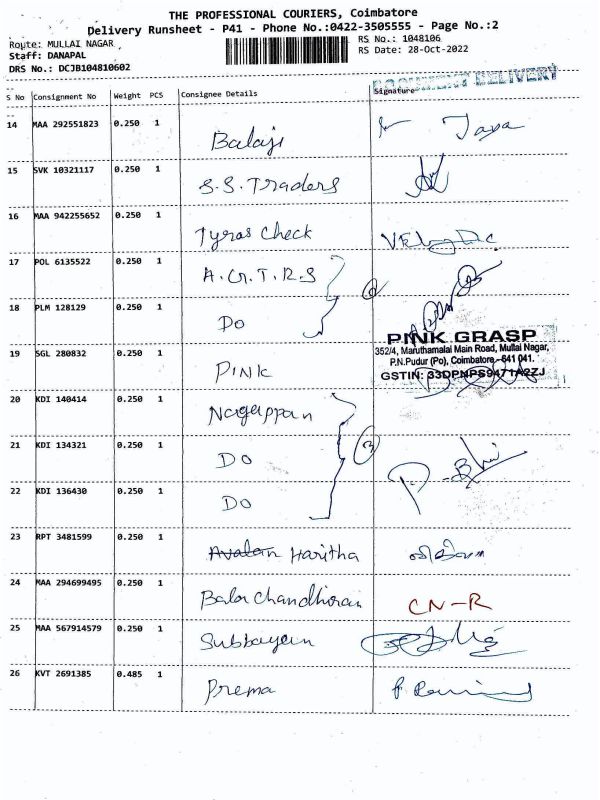 THE PROFESSIONAL COURIERS, Coimbatore
Delivery Runsheet - P41 - Phone No.:0422-3505555 - Page No.:2
Route: MULLAI NAGAR RS No.: 1048106
Staff: DANAPAL RS Date: 28-Oct-2022
DRS No.: DCJB104810602
DOCUMENT DELIVERY
S No Consignment No Weight PCS Consignee Details Signature
14 MAA 292551823 0.250 1 Balaji Jaya
15 SVK 10321117 0.250 1 S.S. Traders
16 MAA 942255652 0.250 1 Tyros Check
17 POL 6135522 0.250 1 A.G.T.R.S
18 PLM 128129 0.250 1 Do
PINK GRASP
352/4, Maruthamalai Main Road, Mullai Nagar,
19 SGL 280832 0.250 1 PINK P.N.Pudur (Po), Coimbatore - 641 041.
GSTIN: 33DPNPS9471A2ZJ
20 KDI 140414 0.250 1 Nagappan
21 KDI 134321 0.250 1 Do 3
22 KDI 136430 0.250 1 Do
23 RPT 3481599 0.250 1 Avalan Haritha
24 MAA 294699495 0.250 1 Bala Chandhiran CN-R
25 MAA 567914579 0.250 1 Subbayan
26 KVT 2691385 0.485 1 Prema